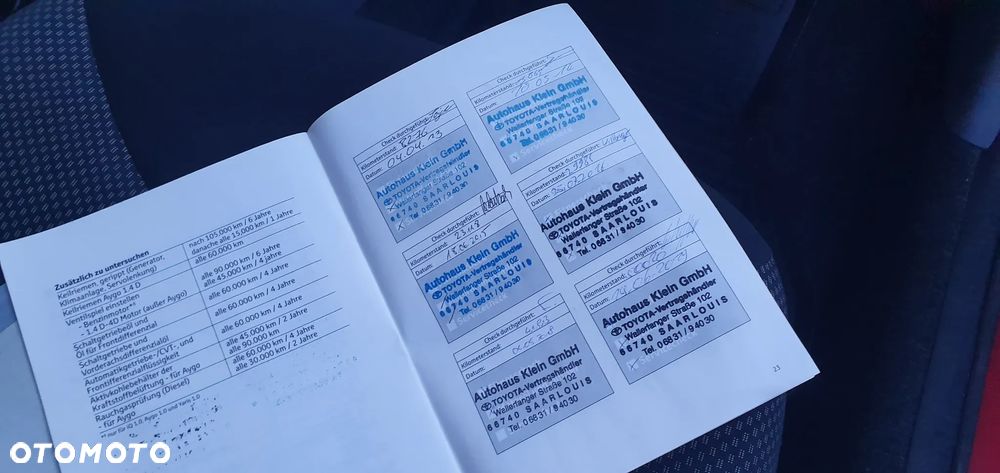 Zusätzlich zu untersuchen
Keilriemen, gerippt (Generator,
Klimaanlage, Servolenkung)
nach 105.000 km / 6 Jahre
danache alle 15.000 km / 1 Jahre
Keilriemen Aygo 1.4 D
alle 60.000 km
Ventilspiel einstellen
- Benzinmotor**
alle 90.000 km / 6 Jahre
- 1.4 D-4D Motor (außer Aygo)
alle 45.000 km / 4 Jahre
Schaltgetriebeöl und
Öl für Frontdifferenzial
alle 60.000 km / 4 Jahre
Schaltgetriebe und
Vorderachsdifferenzialöl
Automatikgetriebe-/CVT- und
Frontdifferenzialflüssigkeit
alle 60.000 km / 4 Jahre
Aktivkohlebehälter der
Kraftstoffbelüftung - für Aygo
alle 45.000 km / 2 Jahre
alle 90.000 km
Rauchgasprüfung (Diesel)
alle 60.000 km / 4 Jahre
- für Aygo
alle 30.000 km / 2 Jahre
** nur für iQ 1.0, Aygo 1.0 und Yaris 1.0
Check durchgeführt:
Kilometerstand:
Datum: 04.04.13
Autohaus Klein GmbH
TOYOTA-Vertragshändler
Wallerfanger Straße 102
66740 SAARLOUIS
Tel. 06831/94030
Check durchgeführt:
Kilometerstand:
Datum:
Autohaus Klein GmbH
TOYOTA-Vertragshändler
Wallerfanger Straße 102
66740 SAARLOUIS
Tel. 06831/94030
Check durchgeführt:
Kilometerstand:
Datum: 18.06.2015
Autohaus Klein GmbH
TOYOTA-Vertragshändler
Wallerfanger Straße 102
66740 SAARLOUIS
Tel. 06831/94030
Check durchgeführt:
Kilometerstand:
Datum:
Autohaus Klein GmbH
TOYOTA-Vertragshändler
Wallerfanger Straße 102
66740 SAARLOUIS
Tel. 06831/94030
Check durchgeführt:
Kilometerstand:
Datum:
Autohaus Klein GmbH
TOYOTA-Vertragshändler
Wallerfanger Straße 102
66740 SAARLOUIS
Tel. 06831/94030
Check durchgeführt:
Kilometerstand:
Datum:
Autohaus Klein GmbH
TOYOTA-Vertragshändler
Wallerfanger Straße 102
66740 SAARLOUIS
Tel. 06831/94030
23
OTOMOTO